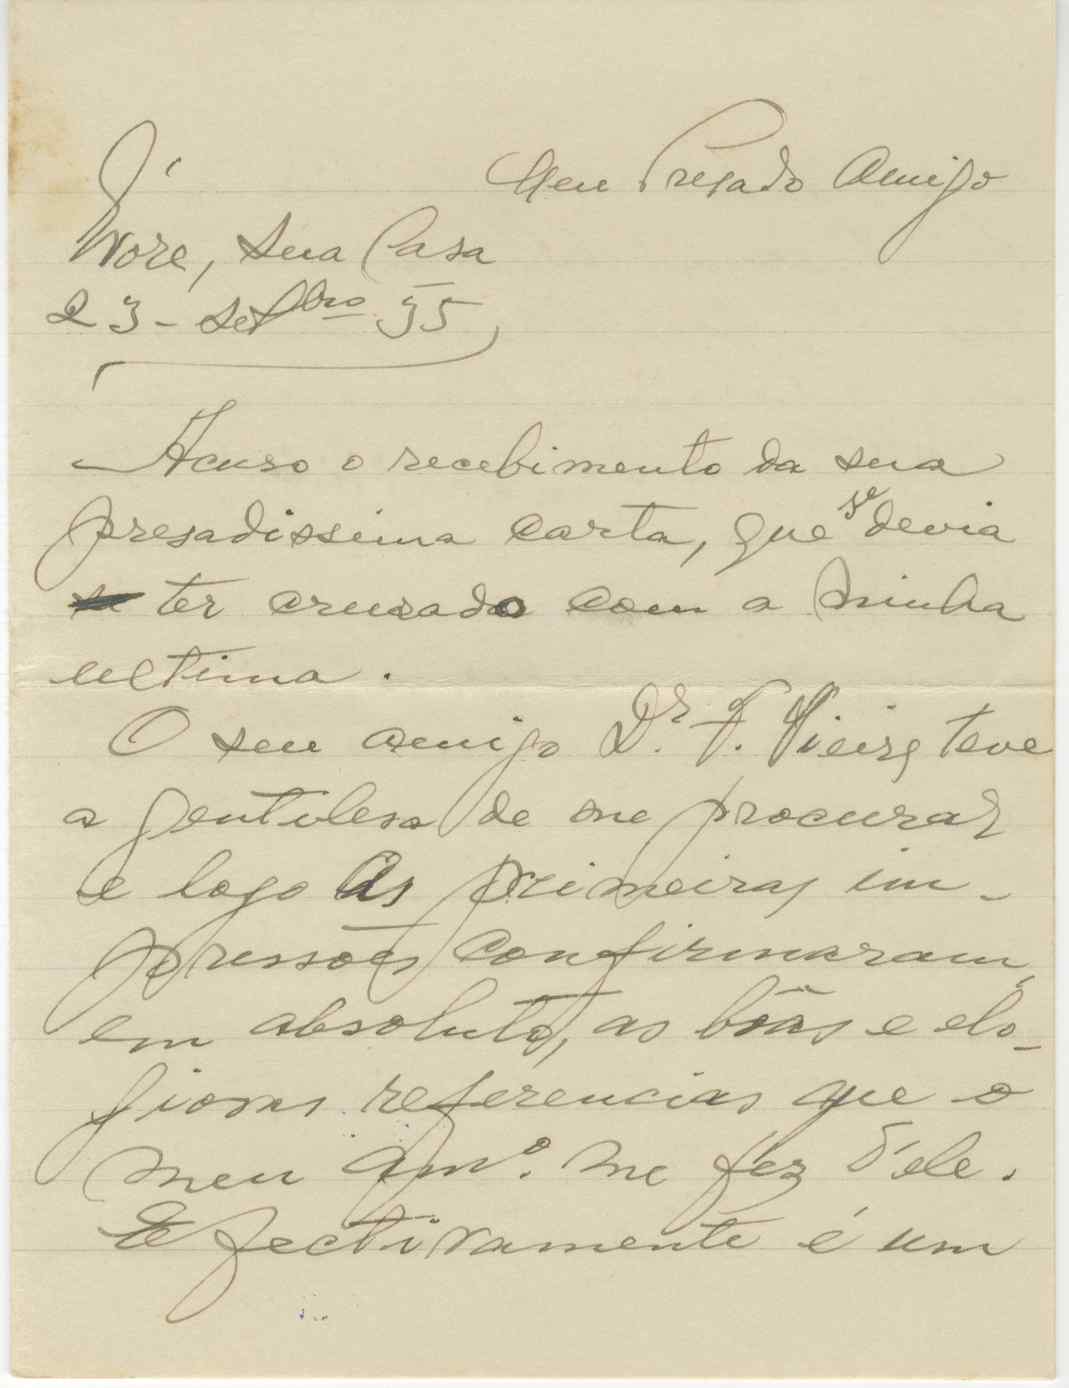 Meu Presado Amigo
sua Casa
23 - Setbro 35
Acuso o recebimento da sua
presadissima carta, que se devia
ter crusado com a minha
ultima.
O seu amigo Dr. F. Vieira teve
a gentilesa de me procurar
e logo as primeiras im-
pressões confirmaram,
em absoluto, as bôas e elo-
giosas referencias que o
meu Amº. me fez d'ele.
Efectivamente é um